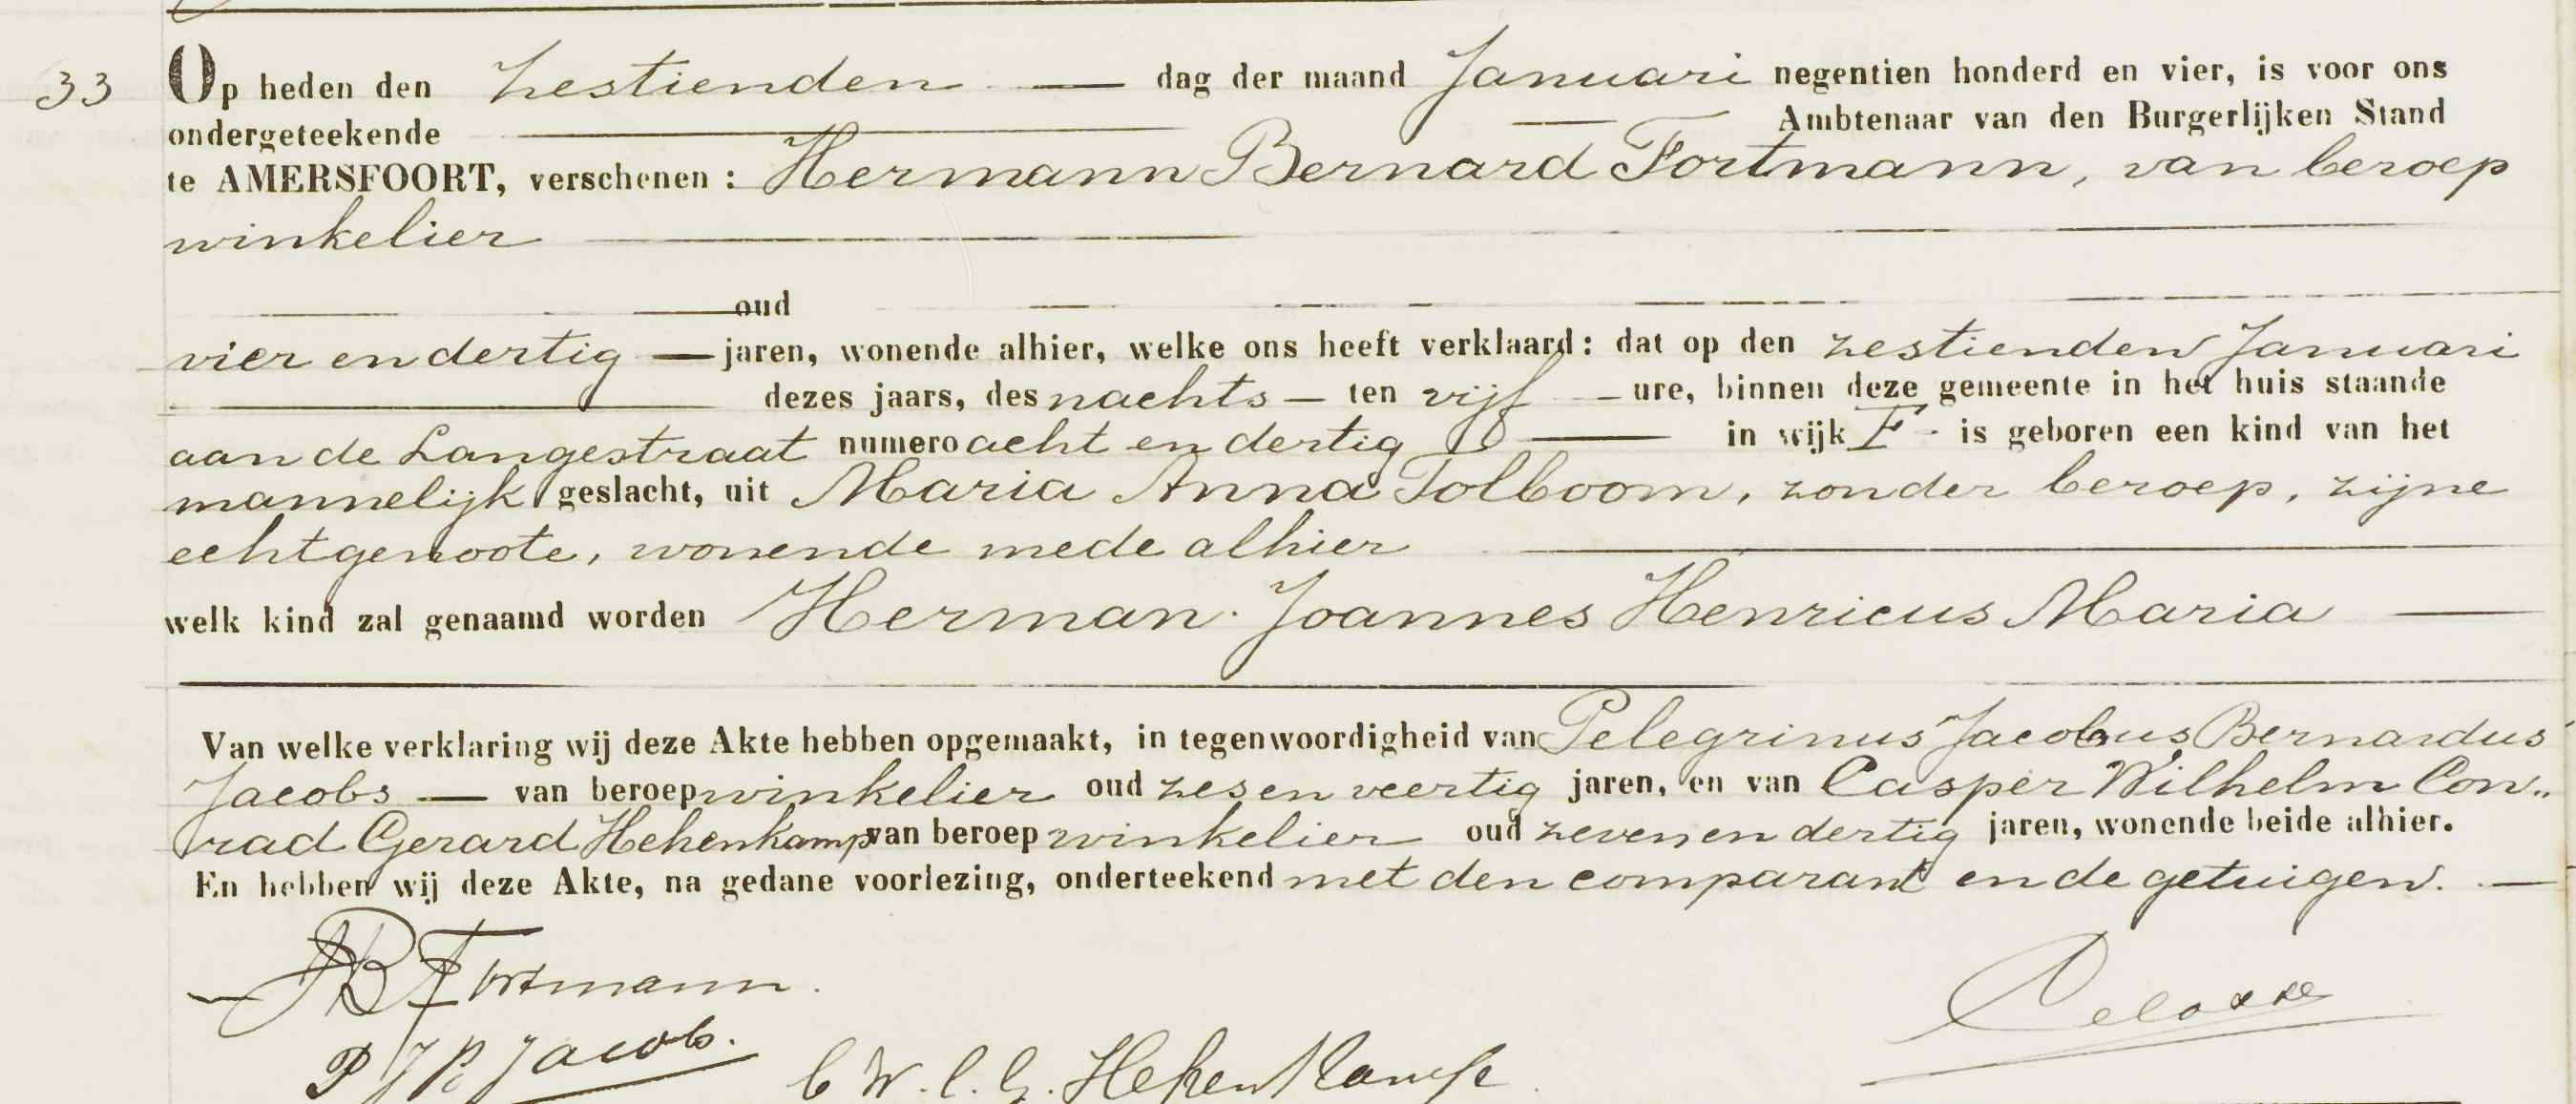 33 Op heden den zestienden — dag der maand Januari negentien honderd en vier, is voor ons
ondergeteekende — Ambtenaar van den Burgerlijken Stand
te AMERSFOORT, verschenen : Hermann Bernard Fortmann, van beroep
winkelier —
— oud
vier en dertig — jaren, wonende alhier, welke ons heeft verklaard: dat op den zestienden Januari
— dezes jaars, des nachts — ten vijf — ure, binnen deze gemeente in het huis staande
aan de Langestraat numero acht en dertig — in wijk F - is geboren een kind van het
mannelijk geslacht, uit Maria Anna Tolboom, zonder beroep, zijne
echtgenoote, wonende mede alhier —
welk kind zal genaamd worden Herman Joannes Henricus Maria —
Van welke verklaring wij deze Akte hebben opgemaakt, in tegenwoordigheid van Pelegrinus Jacobus Bernardus
Jacobs — van beroep winkelier oud zes en veertig jaren, en van Casper Wilhelm Con„
rad Gerard Hehenkamp van beroep winkelier oud zeven en dertig jaren, wonende beide alhier.
En hebben wij deze Akte, na gedane voorlezing, onderteekend met den comparant en de getuigen. —
HB Fortmann.
P J B Jacobs.
C W. C. G. Hehenkamp